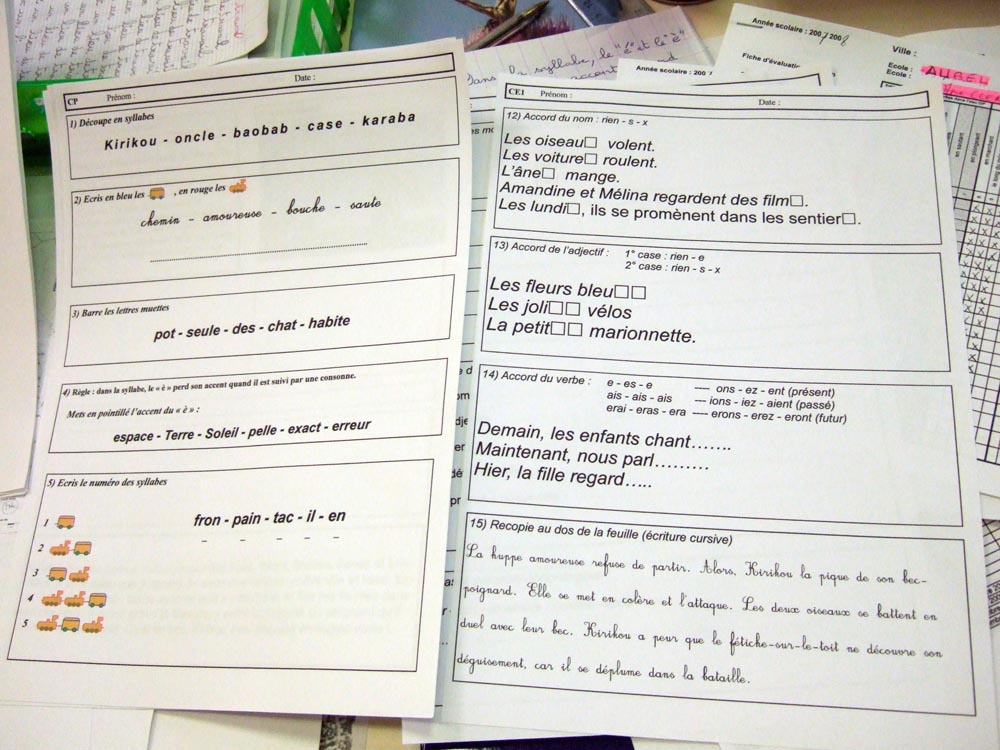 CP Prénom : Date :
1) Découpe en syllabes
Kirikou - oncle - baobab - case - karaba
2) Ecris en bleu les , en rouge les
chemin - amoureuse - bouche - saute
3) Barre les lettres muettes
pot - seule - des - chat - habite
4) Règle : dans la syllabe, le « è » perd son accent quand il est suivi par une consonne.
Mets en pointillé l'accent du « è » :
espace - Terre - Soleil - pelle - exact - erreur
5) Ecris le numéro des syllabes
fron - pain - tac - il - en
1
2
3
4
5
Dans la syllabe, le "é" et le "è"
Année scolaire : 200
Année scolaire : 2007/2008
Fiche d'évaluation
Ville :
Ecole :
Ecole :
CE1 Prénom : Date :
12) Accord du nom : rien - s - x
Les oiseau□ volent.
Les voiture□ roulent.
L'âne□ mange.
Amandine et Mélina regardent des film□.
Les lundi□, ils se promènent dans les sentier□.
13) Accord de l'adjectif : 1° case : rien - e
2° case : rien - s - x
Les fleurs bleu□□
Les joli□□ vélos
La petit□□ marionnette.
14) Accord du verbe : e - es - e ---- ons - ez - ent (présent)
ais - ais - ais ---- ions - iez - aient (passé)
erai - eras - era ---- erons - erez - eront (futur)
Demain, les enfants chant.......
Maintenant, nous parl.........
Hier, la fille regard.....
15) Recopie au dos de la feuille (écriture cursive)
La huppe amoureuse refuse de partir. Alors, Kirikou la pique de son bec-
poignard. Elle se met en colère et l'attaque. Les deux oiseaux se battent en
duel avec leur bec. Kirikou a peur que le fétiche-sur-le-toit ne découvre son
déguisement, car il se déplume dans la bataille.